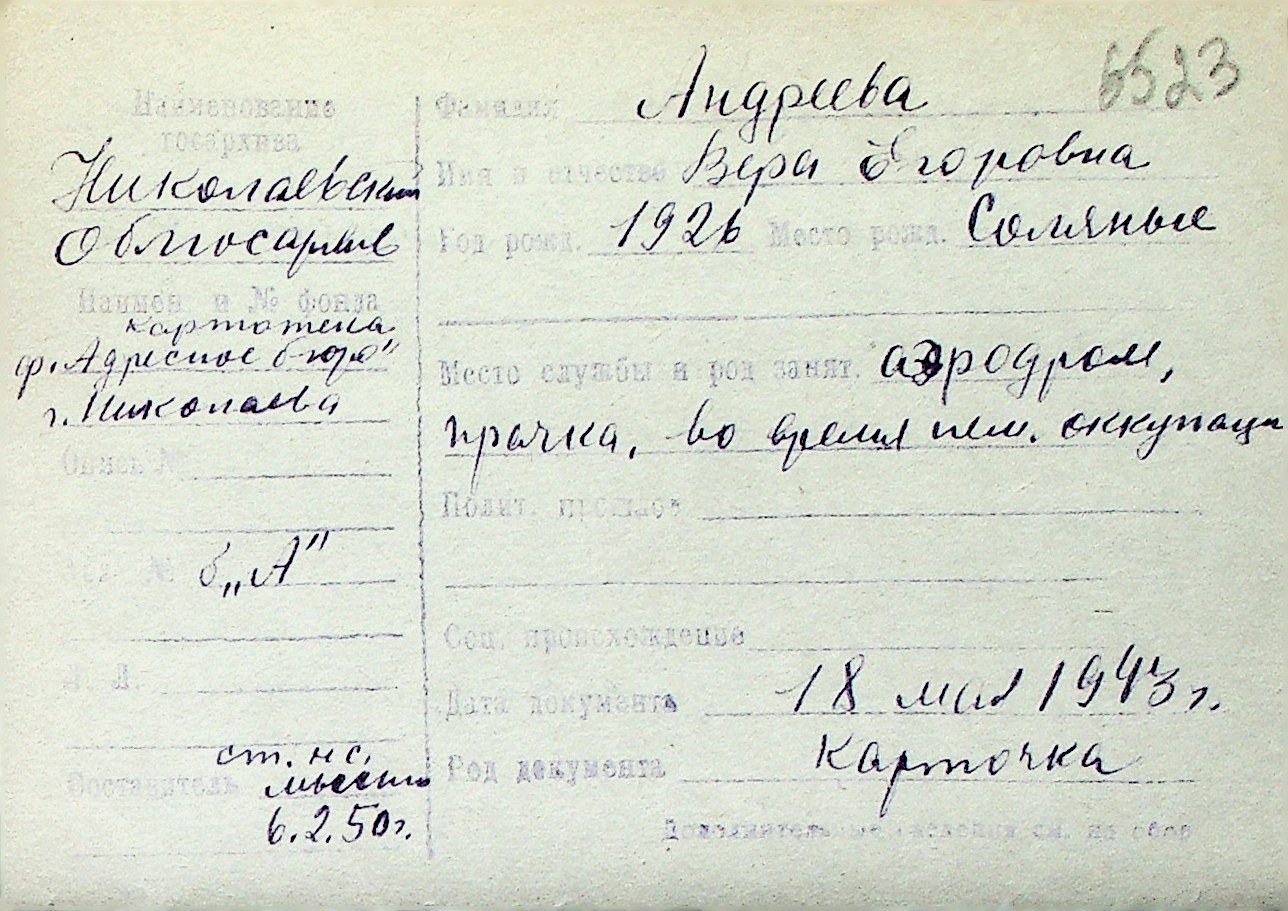 6523
Наименование
госархива
Николаевский
Облгосархив
Наимен. и № фонда
картотека
ф. „Адресное бюро"
г. Николаева
Опись №
№ б „А"
Л. Л.
ст. н с.
Составитель
6.2.50г.
Фамилия Андреева
Имя и отчество Вера Егоровна
Год рожд. 1926 Место рожд. Соляные
Место службы и род занят. аэродром,
прачка, во время нем. оккупаци
Полит. прошлое
Соц. происхождение
Дата документа 18 мая 1943 г.
Род документа Карточка
Дополнительные сведения см. на обор